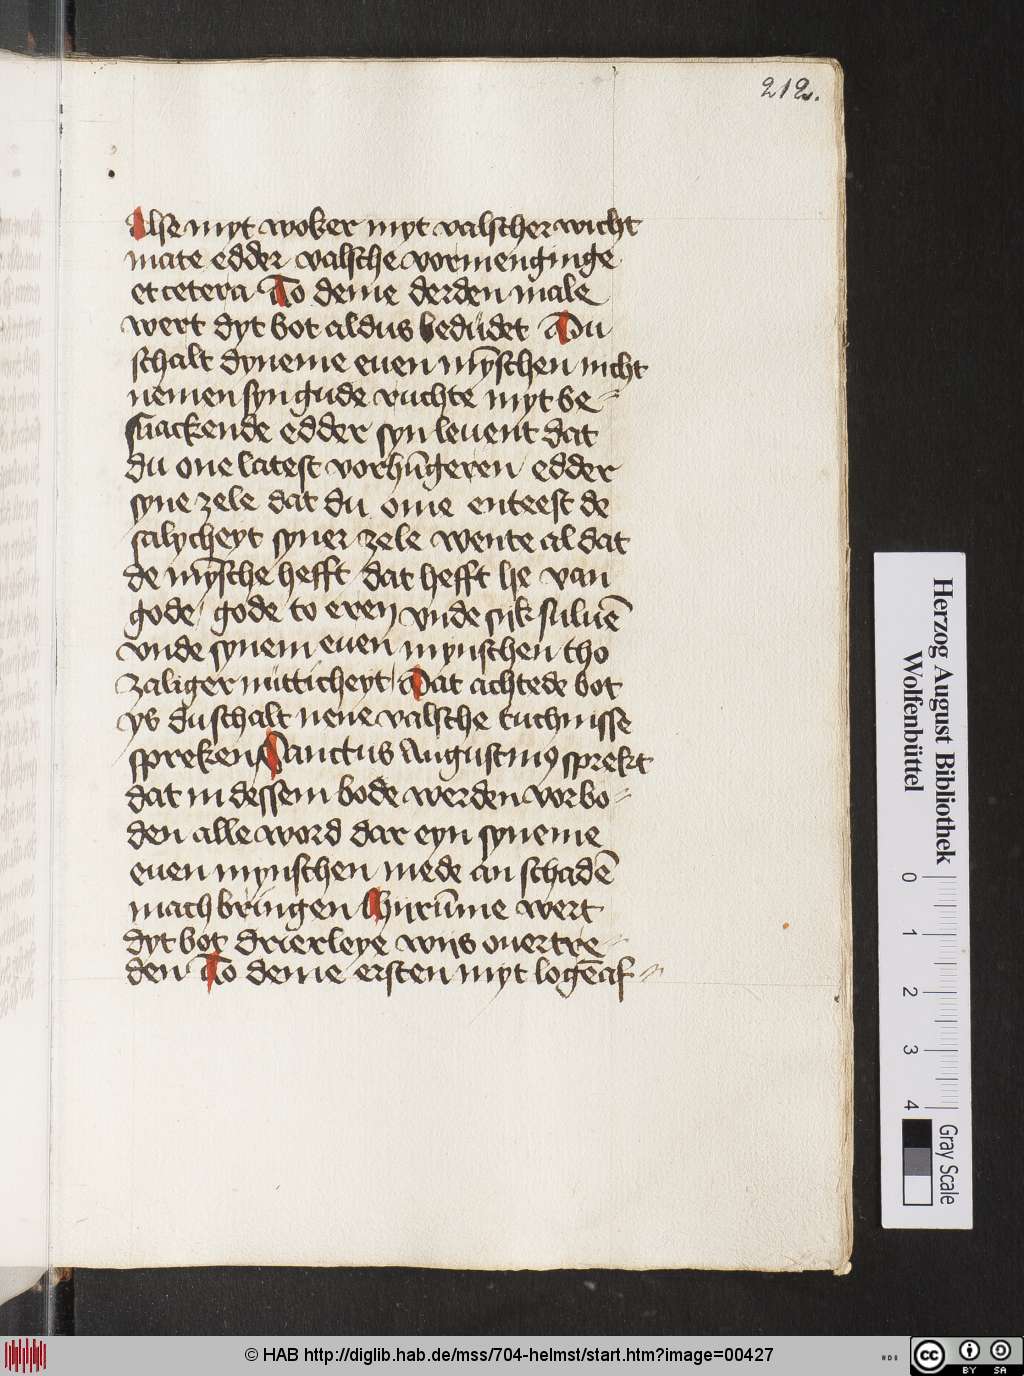 212.
Alse myt woker myt valscher wicht
mate edder valsche vormenginge
et cetera To deme derden male
wert dyt bot aldus bedudet Du
schalt dyneme euen mȳschen nicht
nemen syn gude ruchte myt be⸗
snackende edder syn leuent dat
du one latest vorhūgeren edder
syne zele dat du ome enteest de
salycheyt syner zele wente al dat
de mȳsche hefft dat hefft he van
gode gode to eren vnde sik suluē
vnde synem euen mynschen tho
zaliger nutticheyt Dat achtede bot
ys du schalt nene valsche tuchnisse
spreken Sanctus Augustinꝰ sprekt
dat in dessem bode werden vorbo⸗
den alle word dar eyn syneme
euen mynschen mede an schadē
mach bringen Hirūme wert
dyt bot drierleye wijs ouertre⸗
den To deme ersten myt logēaf⸗
Herzog August Bibliothek
Wolfenbüttel
0 1 2 3 4
Gray Scale
© HAB http://diglib.hab.de/mss/704-helmst/start.htm?image=00427
cc BY SA